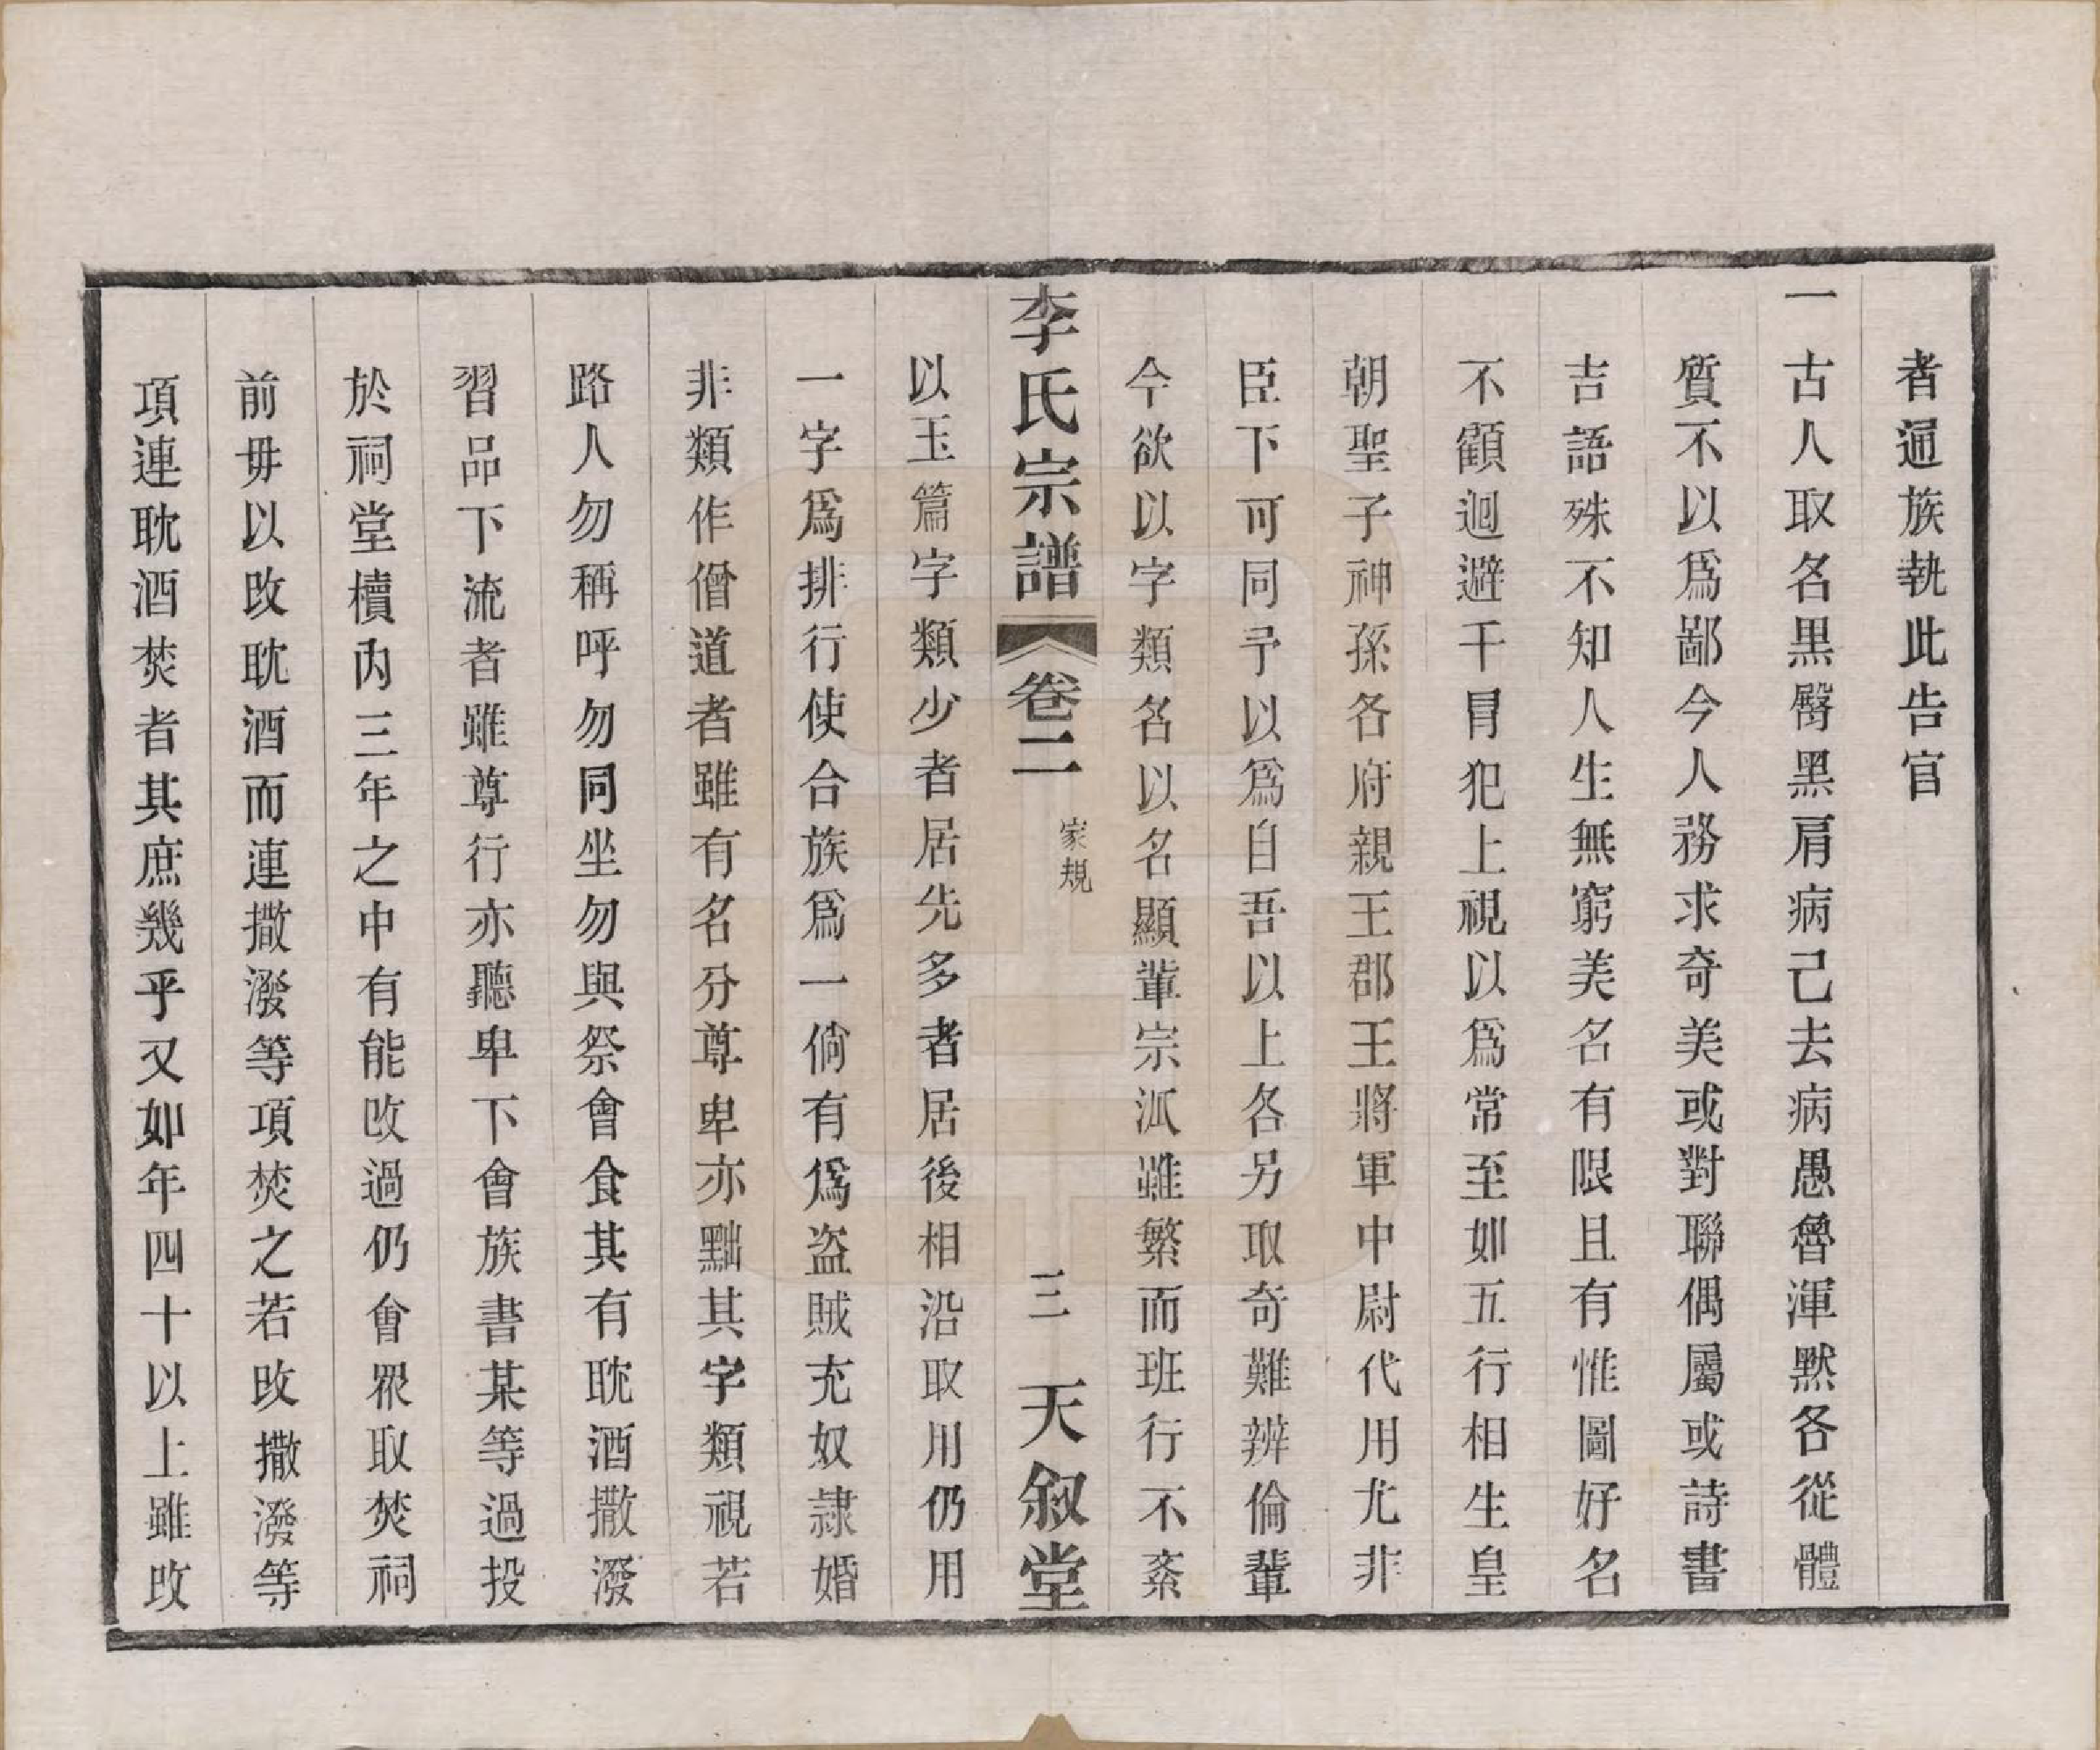 者通族執此告官
一古人取名黑臀黑肩病己去病愚魯渾默各從體
質不以爲鄙今人務求奇美或對聯偶屬或詩書
吉語殊不知人生無窮美名有限且有惟圖好名
不顧迴避干冐犯上視以爲常至如五行相生皇
朝聖子神孫各府親王郡王將軍中尉代用尤非
臣下可同予以爲自吾以上各另取奇難辨倫輩
今欲以字類名名以名顯輩宗派雖繁而班行不紊
李氏宗譜 卷二 家規 三 天叙堂
以玉篇字類少者居先多者居後相沿取用仍用
一字爲排行使合族爲一倘有爲盗賊充奴隷婚
非類作僧道者雖有名分尊卑亦黜其字類視若
路人勿稱呼勿同坐勿與祭會食其有耽酒撒潑
習品下流者雖尊行亦聽卑下會族書某等過投
於祠堂櫝内三年之中有能改過仍會眾取焚祠
前毋以改耽酒而連撒潑等項焚之若改撒潑等
項連耽酒焚者其庶幾乎又如年四十以上雖改